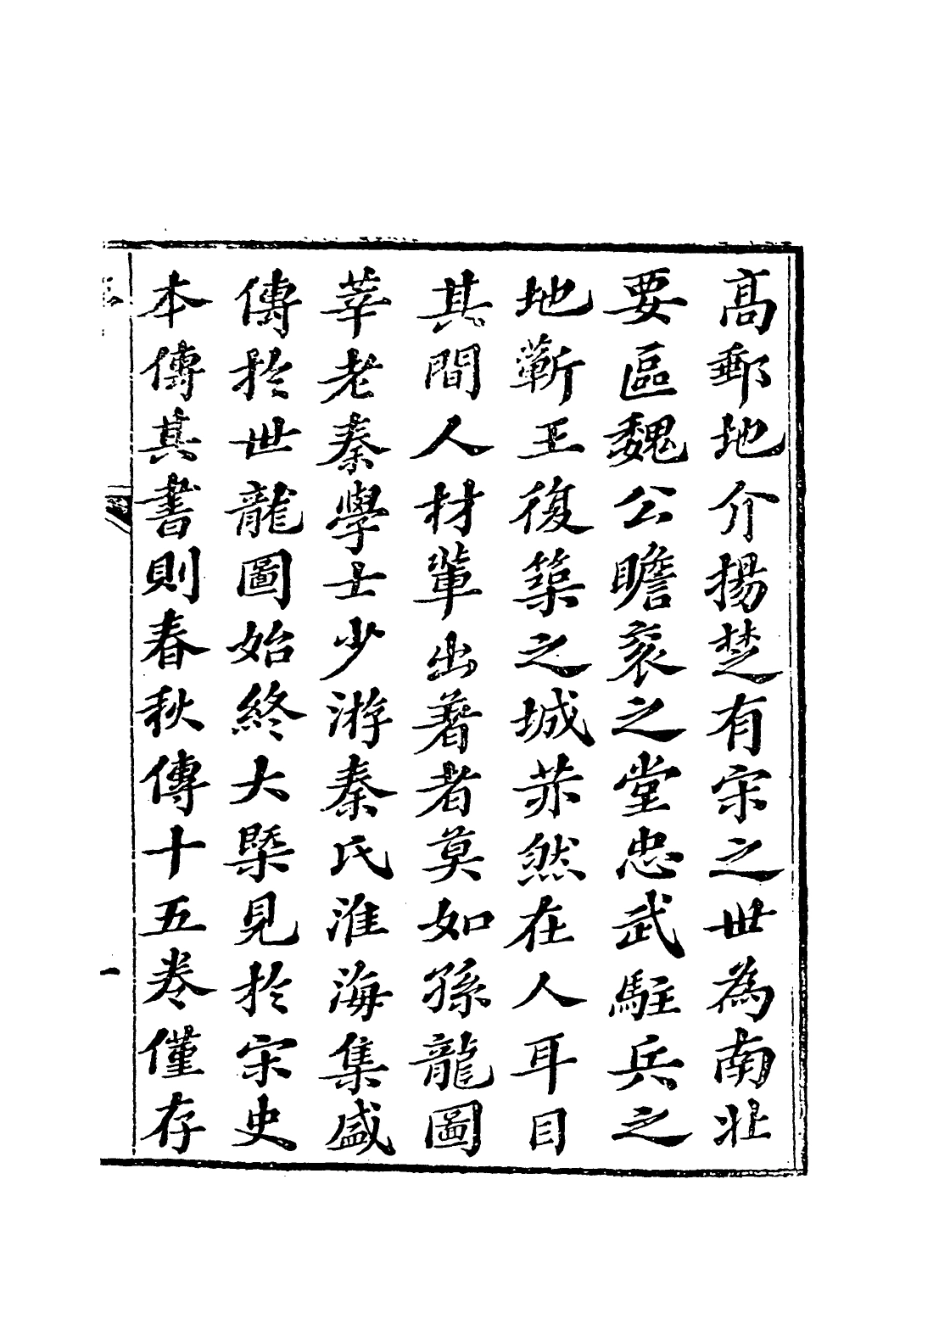 高郵地介揚楚有宋之世為南北
要區魏公瞻衮之堂忠武駐兵之
地蘄王復築之城赤然在人耳目
其間人材輩出著者莫如孫龍圖
莘老秦學士少游秦氏淮海集盛
傳於世龍圖始終大槩見於宋史
本傳其書則春秋傳十五卷僅存
一